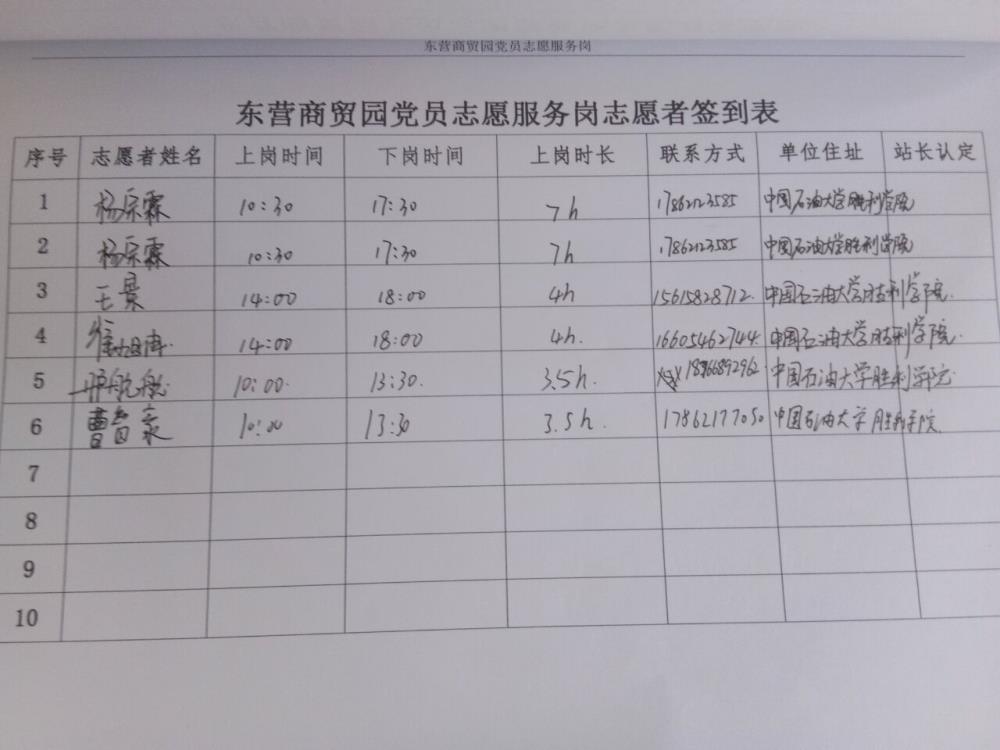 东营商贸园党员志愿服务岗
东营商贸园党员志愿服务岗志愿者签到表
序号 志愿者姓名 上岗时间 下岗时间 上岗时长 联系方式 单位住址 站长认定
1 杨宗霖 10:30 17:30 7h 17862123585 中国石油大学胜利学院
2 杨宗霖 10:30 17:30 7h 17862123585 中国石油大学胜利学院
3 王景 14:00 18:00 4h 15615828712 中国石油大学胜利学院
4 14:00 18:00 4h 16605462744 中国石油大学胜利学院
5 10:00 13:30 3.5h 中国石油大学胜利学院
6 10:00 13:30 3.5h 17862177050 中国石油大学胜利学院
7
8
9
10